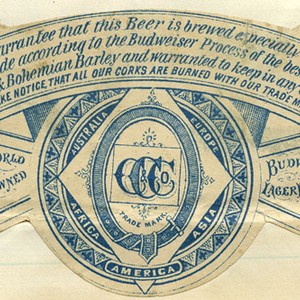 guarantee that this Beer is brewed especially
de according to the Budweiser Process of the bes
& Bohemian Barley and warranted to keep in any
KE NOTICE THAT ALL OUR CORKS ARE BURNED WITH OUR TRADE M
AUSTRALIA
EUROPE
ORLD
OWNED
CCC & CO
TRADE MARK
BUDW
LAGER
AFRICA
ASIA
AMERICA